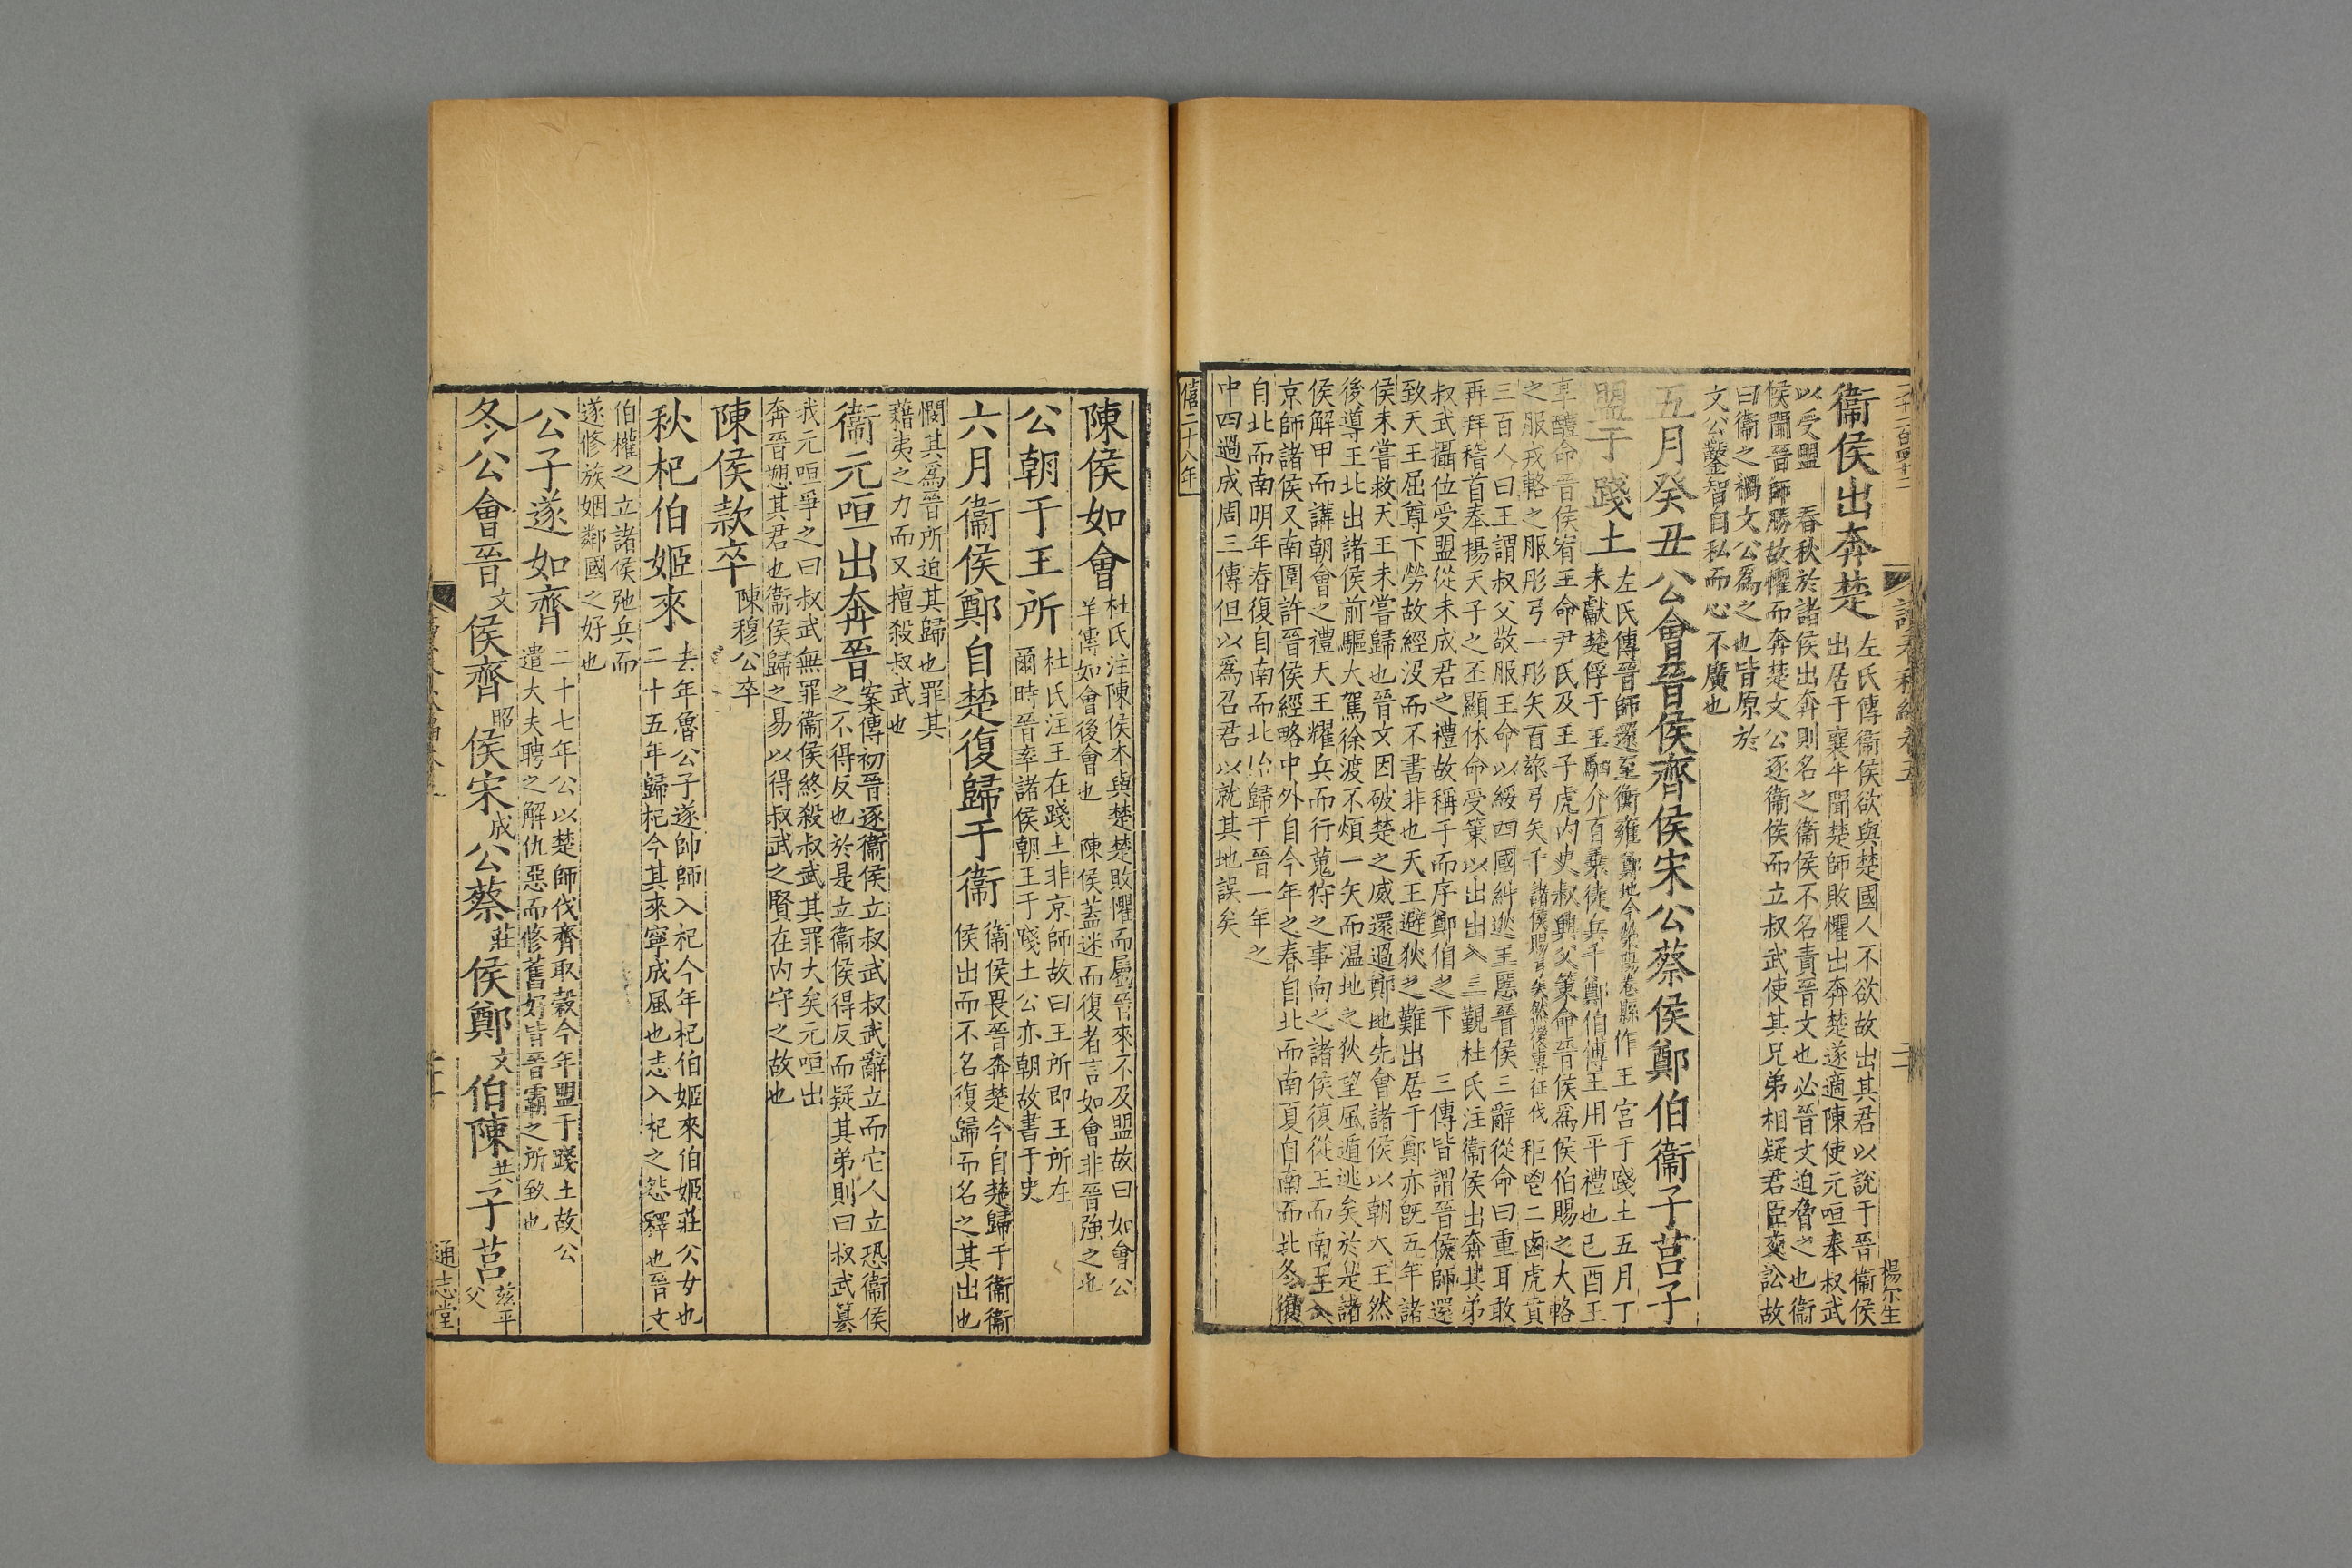 衞侯出奔楚
左氏傳衞侯欲與楚國人不欲故出其君以說于晉衞侯
出居于襄牛聞楚師敗懼出奔楚遂適陳使元咺奉叔武
以受盟 春秋於諸侯出奔則名之衞侯不名責晉文也必晉文迫脅之也衞
侯聞晉師勝故懼而奔楚文公逐衞侯而立叔武使其兄弟相疑君臣交訟故
曰衞之禍文公爲之也皆原於
文公鑿智自私而心不廣也
五月癸丑公會晉侯齊侯宋公蔡侯鄭伯衞子莒子
盟于踐土
左氏傳晉師還至衡雍鄭地今滎陽卷縣作王宮于踐土五月丁
未獻楚俘于王駟介百乘徒兵千鄭伯傅王用平禮也己酉王
享醴命晉侯宥王命尹氏及王子虎内史叔興父策命晉侯爲侯伯賜之大輅
之服戎輅之服彤弓一彤矢百玈弓矢千諸侯賜弓矢然後專征伐秬鬯二卣虎賁
三百人曰王謂叔父敬服王命以綏四國糾逖王慝晉侯三辭從命曰重耳敢
再拜稽首奉揚天子之丕顯休命受策以出出入三覲杜氏注衞侯出奔其弟
叔武攝位受盟從未成君之禮故稱子而序鄭伯之下 三傳皆謂晉侯師還
致天王屈尊下勞故經没而不書非也天王避狄之難出居于鄭亦旣五年諸
侯未嘗救天王未嘗歸也晉文因破楚之威還過鄭地先會諸侯以朝大王然
後導王北出諸侯前驅大駕徐渡不煩一矢而温地之狄望風遁逃矣於是諸
侯解甲而講朝會之禮天王耀兵而行蒐狩之事向之諸侯復從王而南至入
京師諸侯又南圍許晉侯經略中外自今年之春自北而南夏自南而北冬復
自北而南明年春復自南而北始歸于晉一年之
中四過成周三傳但以爲召君以就其地誤矣
楊尔生
僖二十八年
陳侯如會
杜氏注陳侯本與楚楚敗懼而屬晉來不及盟故曰如會公
羊傳如會後會也 陳侯蓋迷而復者言如會非晉強之也
公朝于王所
杜氏注王在踐土非京師故曰王所即王所在
爾時晉率諸侯朝王于踐土公亦朝故書于史
六月衞侯鄭自楚復歸于衞
衞侯畏晉奔楚今自楚歸于衞衞
侯出而不名復歸而名之其出也
憫其爲晉所迫其歸也罪其
藉夷之力而又擅殺叔武也
衞元咺出奔晉
案傳初晉逐衞侯立叔武叔武辭立而它人立恐衞侯
之不得反也於是立衞侯得反而疑其弟則曰叔武簒
我元咺爭之曰叔武無罪衞侯終殺叔武其罪大矣元咺出
奔晉愬其君也衞侯歸之易以得叔武之賢在内守之故也
陳侯款卒
陳穆公卒
秋杞伯姬來
去年魯公子遂帥師入杞今年杞伯姬來伯姬莊公女也
二十五年歸杞今其來寧成風也志入杞之怨釋也晉文
伯權之立諸侯弛兵而
遂修族姻鄰國之好也
公子遂如齊
二十七年公以楚師伐齊取穀今年盟于踐土故公
遣大夫聘之解仇惡而修舊好皆晉霸之所致也
冬公會晉文侯齊昭侯宋成公蔡莊侯鄭文伯陳共子莒兹平父
通志堂